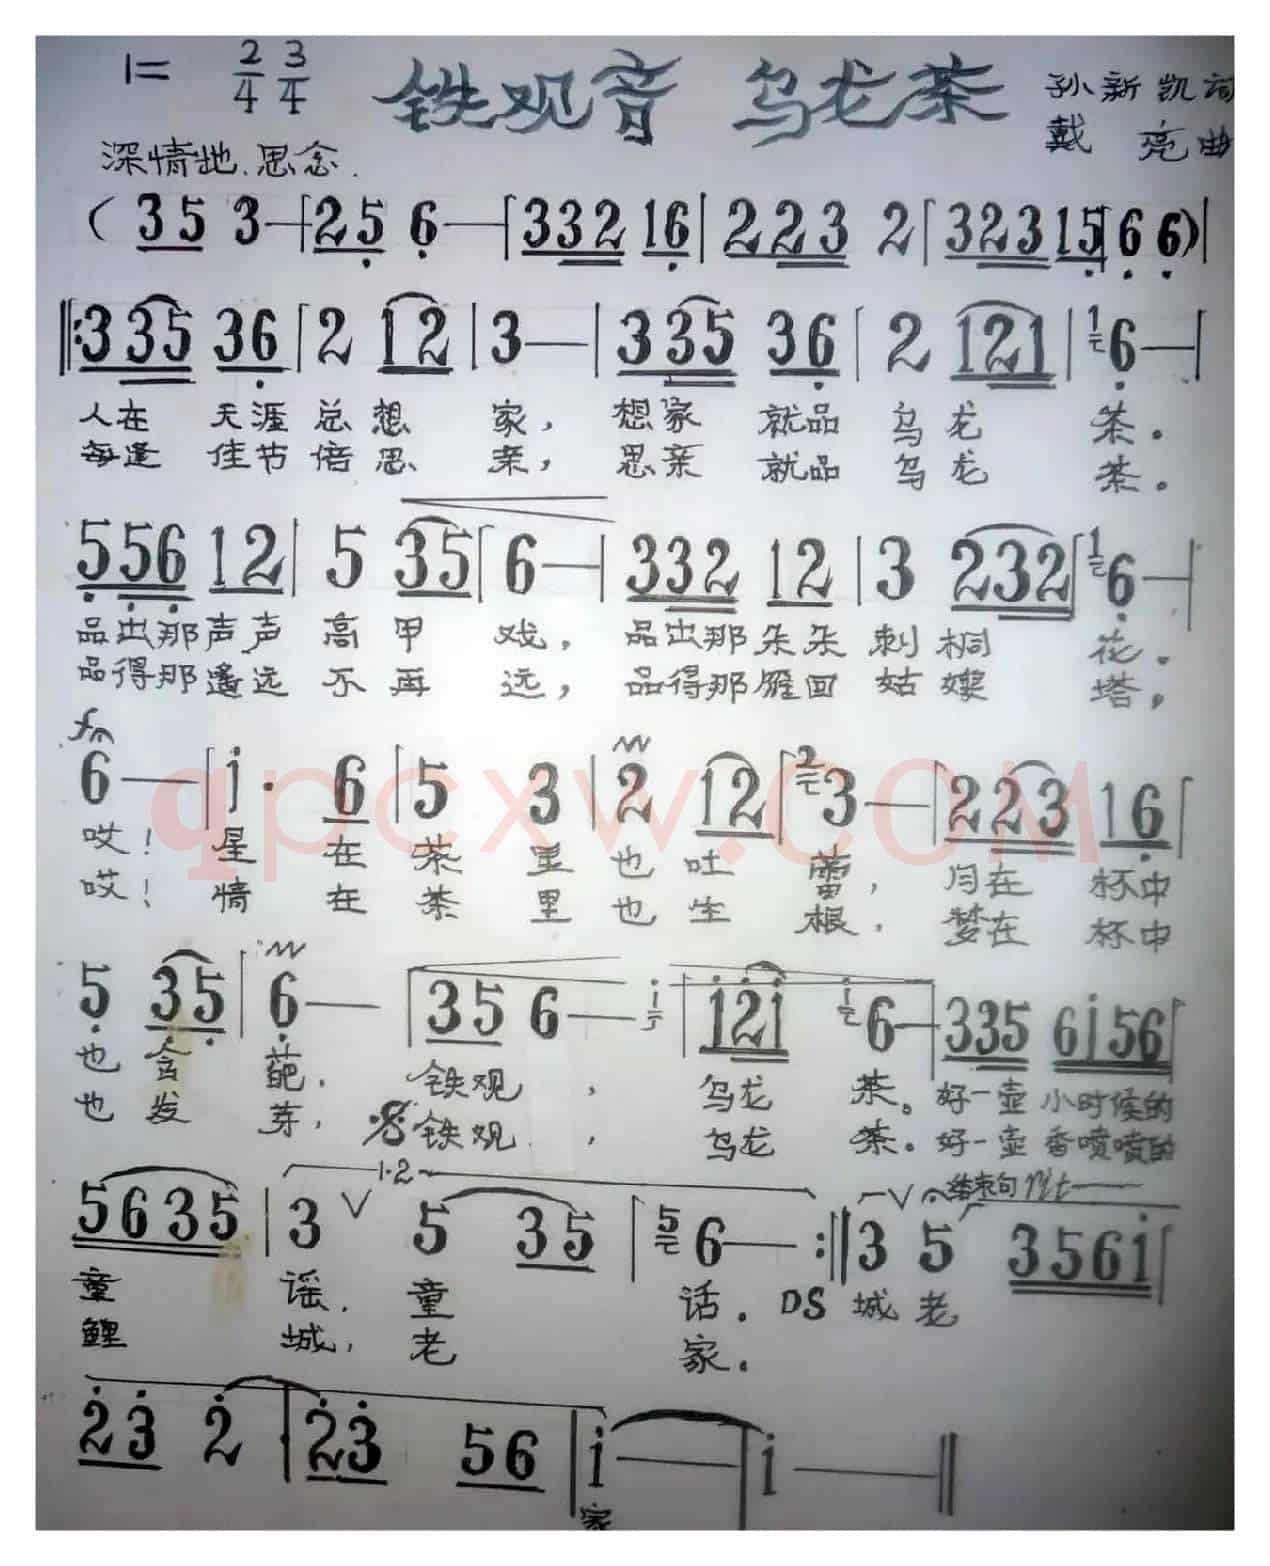 1= 2/4 3/4 铁观音 乌龙茶 孙新凯词
深情地.思念. 戴 亮曲
( 35 3— | 25 6— | 332 16 | 223 2 | 323 15 | 6 6 ) |
‖: 335 36 | 2 12 | 3— | 335 36 | 2 121 | 1 6— |
人在 天涯 总想 家, 想家 就品 乌龙 茶.
每逢 佳节 倍思 亲, 思亲 就品 乌龙 茶。
556 12 | 5 35 | 6— | 332 12 | 3 232 | 1 6— |
品出那声声 高甲 戏, 品出那朵朵 刺桐 花.
品得那遥远 不再 远, 品得那雁回 姑嫂 塔,
6— | i· 6 | 5 3 | 2 12 | 2 3— | 223 16 |
哎! 星 在 茶 里 也 吐 蕾, 月在 杯中
哎! 情 在 茶 里 也 生 根, 梦在 杯中
5 35 | 6— | 35 6— i | i2i i 6— | 335 6i56 |
也 含 葩. 铁观 , 乌龙 茶。好一壶 小时候的
也 发 芽, 铁观 , 乌龙 茶.好一壶 香喷喷的
1·2
结束句
5635 | 3 V 5 35 | 5 6— :‖ 3 5 356i |
童 谣. 童 话. DS 城 老
鲤 城, 老 家.
23 2 | 23 56 | i— | i— ‖
家
qpcxw.com